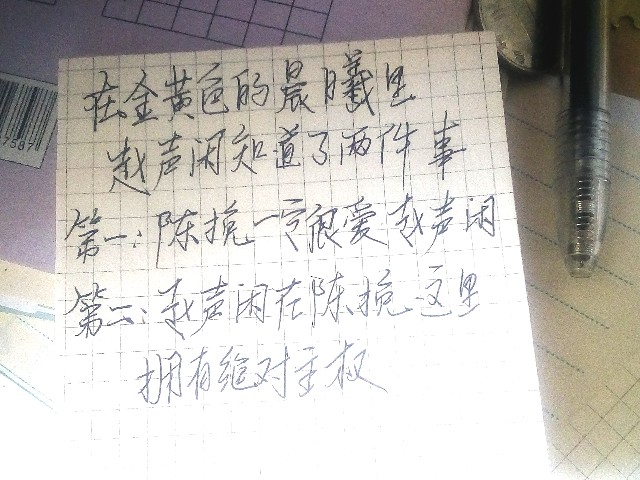 在金黄色的晨曦里
赵声闲知道了两件事
第一:陈挽一定很爱赵声闲
第二:赵声闲在陈挽这里
拥有绝对主权
7587